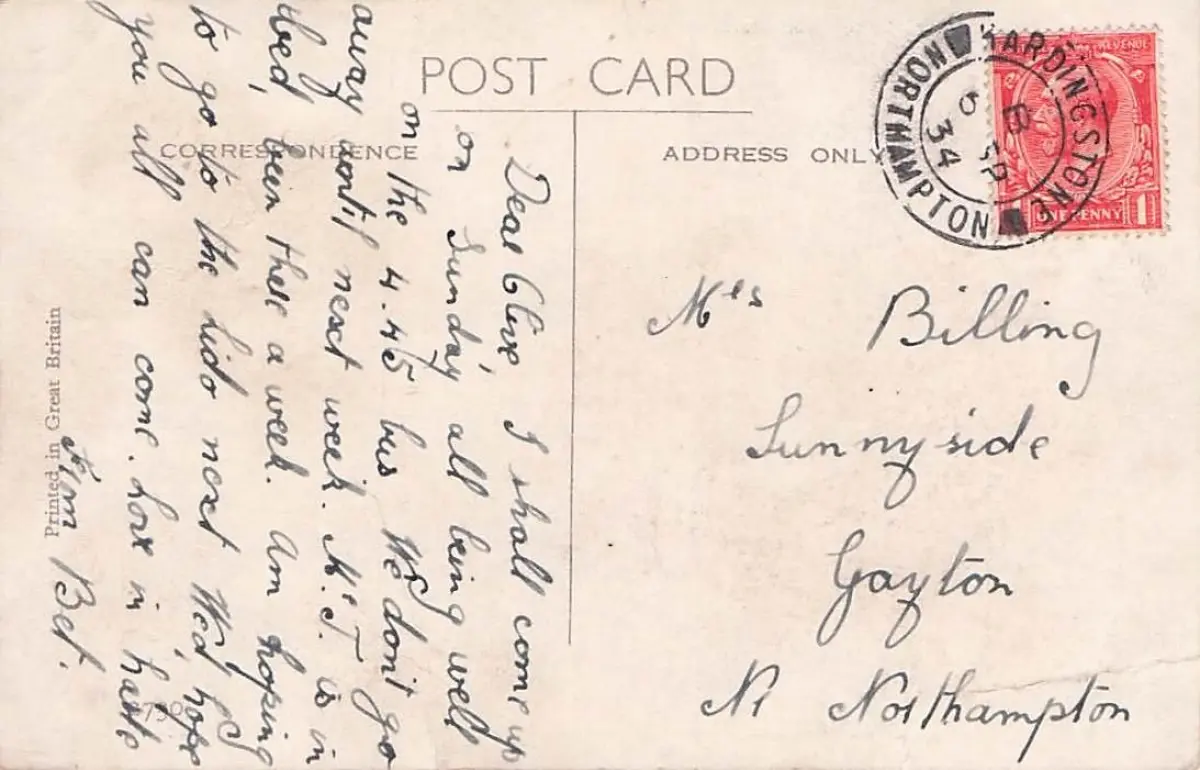 POST CARD
CORRESPONDENCE
ADDRESS ONLY
HARDINGSTONE
NORTHAMPTON
34
REVENUE
ONE PENNY
1
Dear Clive, I shall come up
on Sunday all being well
on the 4.45 bus We don't go
away until next week. Mr. J. is in
bed, been there a week. Am hoping
to go to the Lido next Wed, hope
you all can come. Love in haste
from Bet.
Mrs Billing
Sunnyside
Gayton
Nr Northampton
Printed in Great Britain